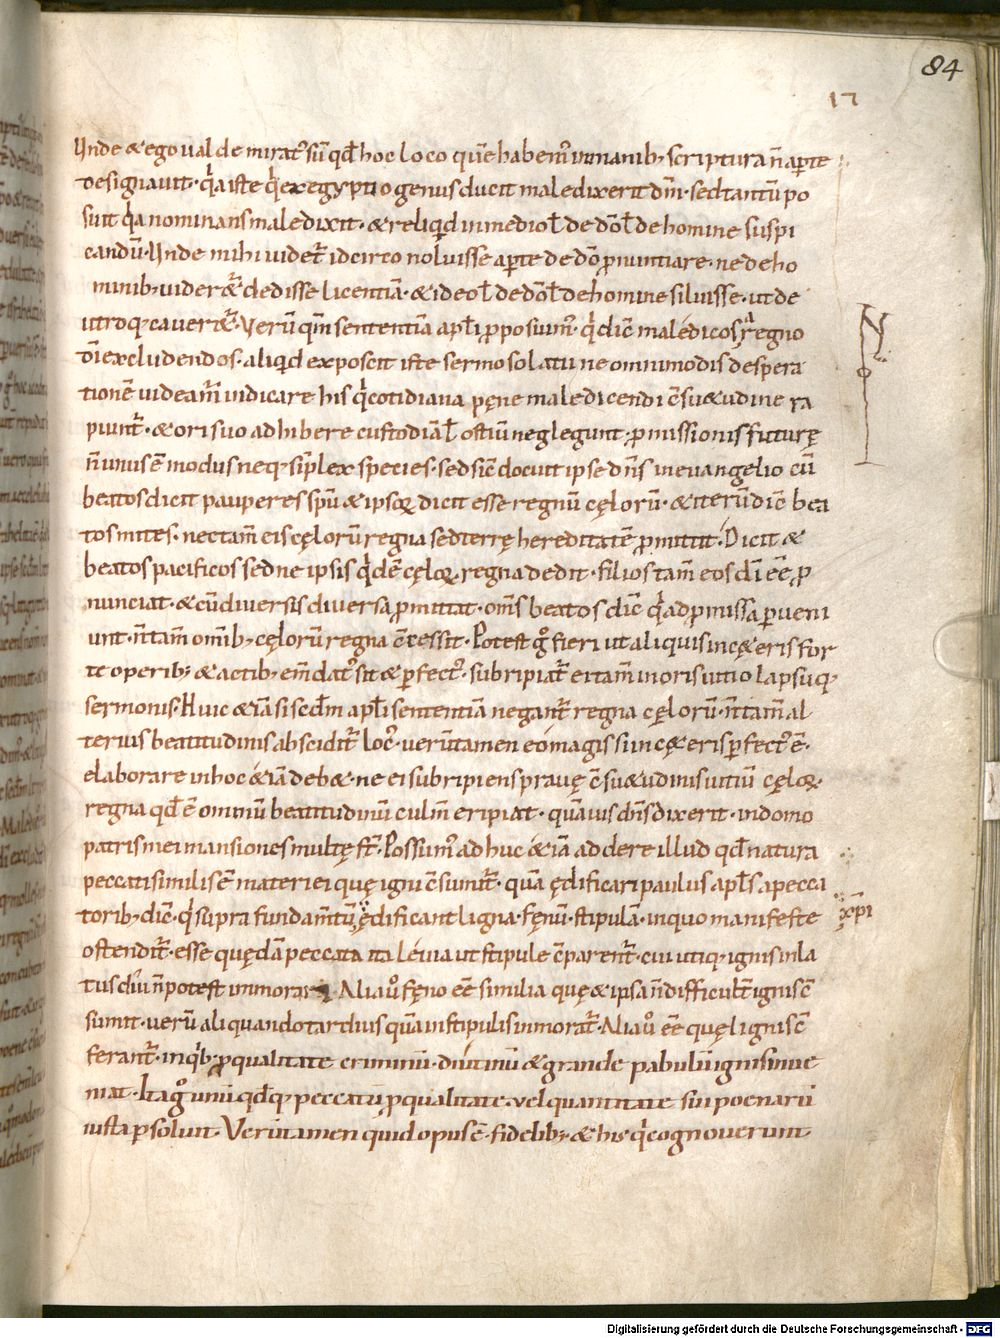 84
17
Unde & ego ualde mirat᷒ sū qd̄ hoc loco quē habem᷒ in manib; scriptura n̄ aꝑte
designauit· q̇a iste q̇ ex egyptio genus ducit maledixerit dn̄m· sed tantū po
suit q̇a nominans maledixit· & reliq̇d in medio ł de dō ł de homine suspi
candū· Unde mihi uidet᷑ idcirco noluisse aꝑte de dō ꝓnuntiare· ne de ho
minib; uider&᷑ dedisse licentiā· & ideo ł de dō ł de homine siluisse· ut de
utroq; cauer&᷑· Verū qm̄ sententiā apl̄i ꝓposuim᷒· q̇ dic̄ maledicos a regno
dī excludendos· aliq̇d exposcit iste sermo solatii ne omnimodis despera
tionē uideam᷒ indicare his q̇ cotidiana pęne maledicendi c̄su&udine ra
piunt᷑· & ori suo adhibere custodiā ł ostiū neglegunt· ꝓmissionis futurę
n̄ unus ē modus neq; simplex species· sed sic̄ docuit ipse dn̄s in euangelio cū
beatos dicit pauperes spū & ipsoꝝ dicit esse regnū cęlorū· & iterū dic̄ bea
tos mites· nec tam̄ eis cęlorū regna sed terrę hereditatē ꝓmittit· Dicit &
beatos pacificos sed ne ipsis q̇dē cęloꝝ regna dedit· filios tam̄ eos dī eē ꝓ
nunciat· & cū diuersis diuersa ꝓmittat· om̄s beatos dic̄ q̇ ad ꝓmissa ꝑueni
unt· n̄ tam̄ omib; cęlorū regna c̄cessit· Potest g̊ fieri ut aliquis in cę&eris for
te operib; & actib; em̄dat᷒ sit & ꝑfect᷒· subripiat᷑ ei tam̄ in oris uitio lapsuq;
sermonis· Huic &iā si scdm̄ apl̄i sententiā negant᷑ regna cęlorū· n̄ tam̄ al
terius beatitudinis abscidit᷑ loc᷒· uerūtamen eo magis si in cę&eris ꝑfect᷒ ē·
elaborare in hoc &iā deb&· ne ei subripiens prauę c̄su&udinis uitiū cęloꝝ
regna qd̄ ē omniū beatitudinū culm̄ eripiat· quāuis dn̄s dixerit· in domo
patris mei mansiones multę st̄· Possum᷒ adhuc &iā addere illud qd̄ natura
peccati similis ē materiei quę igni c̄sumit᷑· quā ędificari paulus apl̄s a pecca
torib; dic̄· q̇ supra fundam̄tū ędificant ligna· fęnū· stipulā· in quo manifeste
xp̄i
ostendit᷑· esse quędā peccata ita leuia ut stipule c̄parent᷑· cui utiq; ignis inla
tus diu n̄ potest immorari· Alia ů fęno eē similia quę & ipsa n̄ difficult᷑ ignis c̄
sumit· uerū aliquando tardius quā in stipulis immorat᷑· Alia ů eē quę lignis c̄
ferant᷑· in q̇b; ꝓ qualitate criminū· diutinū & grande pabulū ignis inue
niat· Ita g̊ unū qdq; peccatū ꝓ qualitate· uel quantitate sui poenarū
iusta ꝑsoluit· Verūtamen quid opus ē· fidelib; & his q̇ cognouerunt
Digitalisierung gefördert durch die Deutsche Forschungsgemeinschaft - DFG